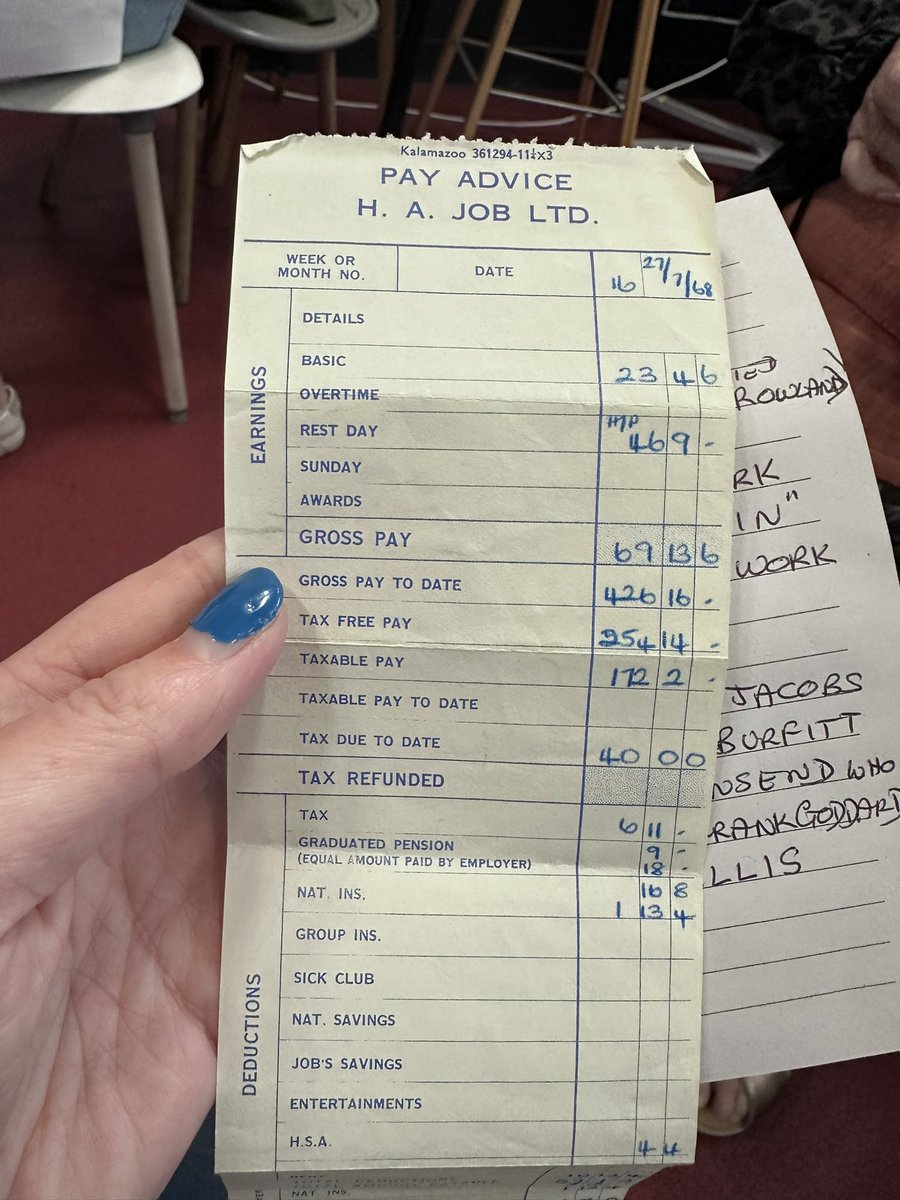 Kalamazoo 361294-11¼X3
PAY ADVICE
H. A. JOB LTD.
WEEK OR MONTH NO. DATE 16 27/7/68
EARNINGS
DETAILS
BASIC 23 4 6
OVERTIME
REST DAY H/P 46 9 -
SUNDAY
AWARDS
GROSS PAY 69 13 6
GROSS PAY TO DATE 426 16 -
TAX FREE PAY 254 14 -
TAXABLE PAY 172 2 -
TAXABLE PAY TO DATE
TAX DUE TO DATE 40 0 0
TAX REFUNDED
DEDUCTIONS
TAX 6 11 -
GRADUATED PENSION 9 -
(EQUAL AMOUNT PAID BY EMPLOYER) 18 -
NAT. INS. 16 8
1 13 4
GROUP INS.
SICK CLUB
NAT. SAVINGS
JOB'S SAVINGS
ENTERTAINMENTS
H.S.A. 4 4
NAT. INS.
ROWLAND)
RK
IN"
WORK
JACOBS
BURFITT
NSEND WHO
RANK GODDARD
LLIS